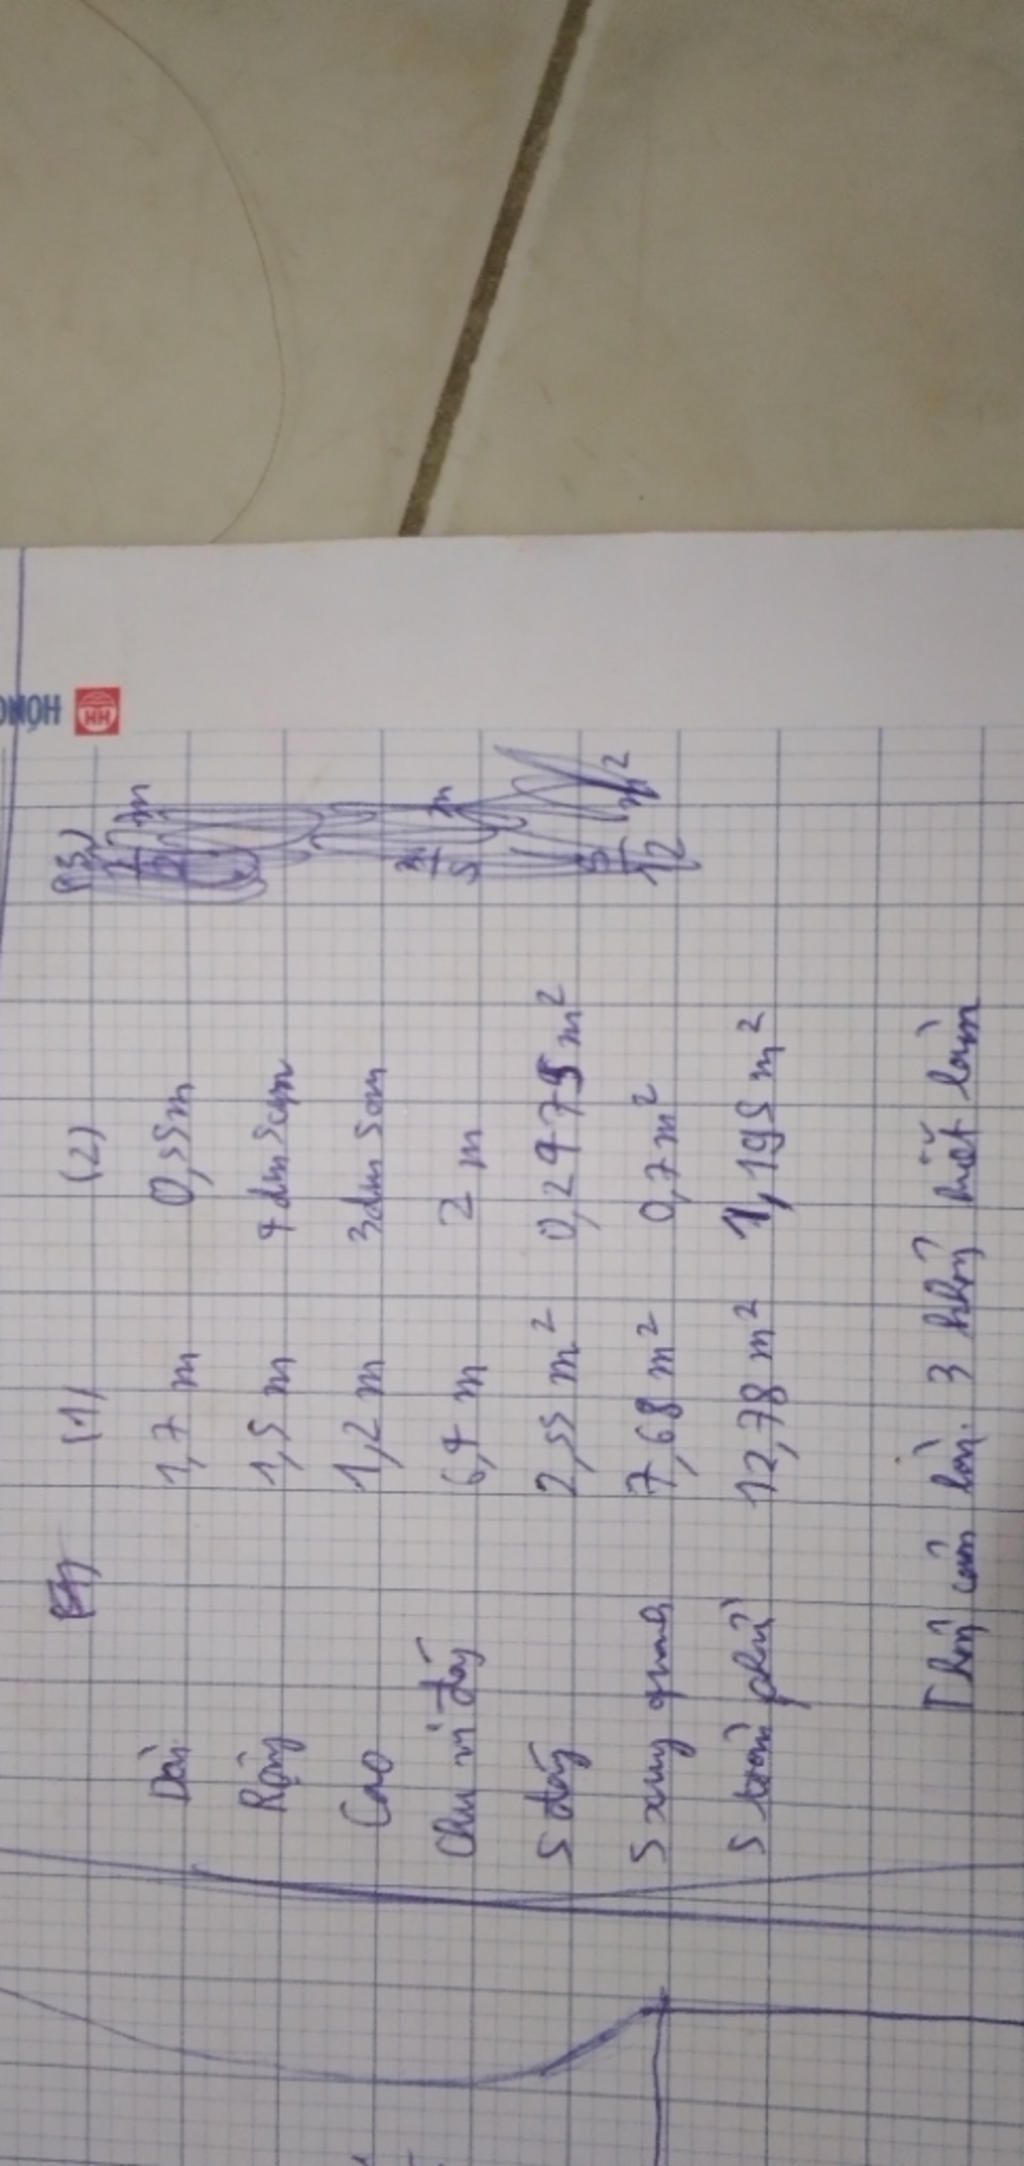 HỒNG HH
(1) (2) (3)
Dài 1,7 m 0,55m
Rộng 1,5 m 4dm5cm
Cao 1,2 m 3dm5cm
Chu vi đáy 6,4 m 2 m
S đáy 2,55 m² 0,2475 m²
S xung quanh 7,68 m² 0,7 m²
S toàn phần 12,78 m² 1,195 m²
3 không biết làm